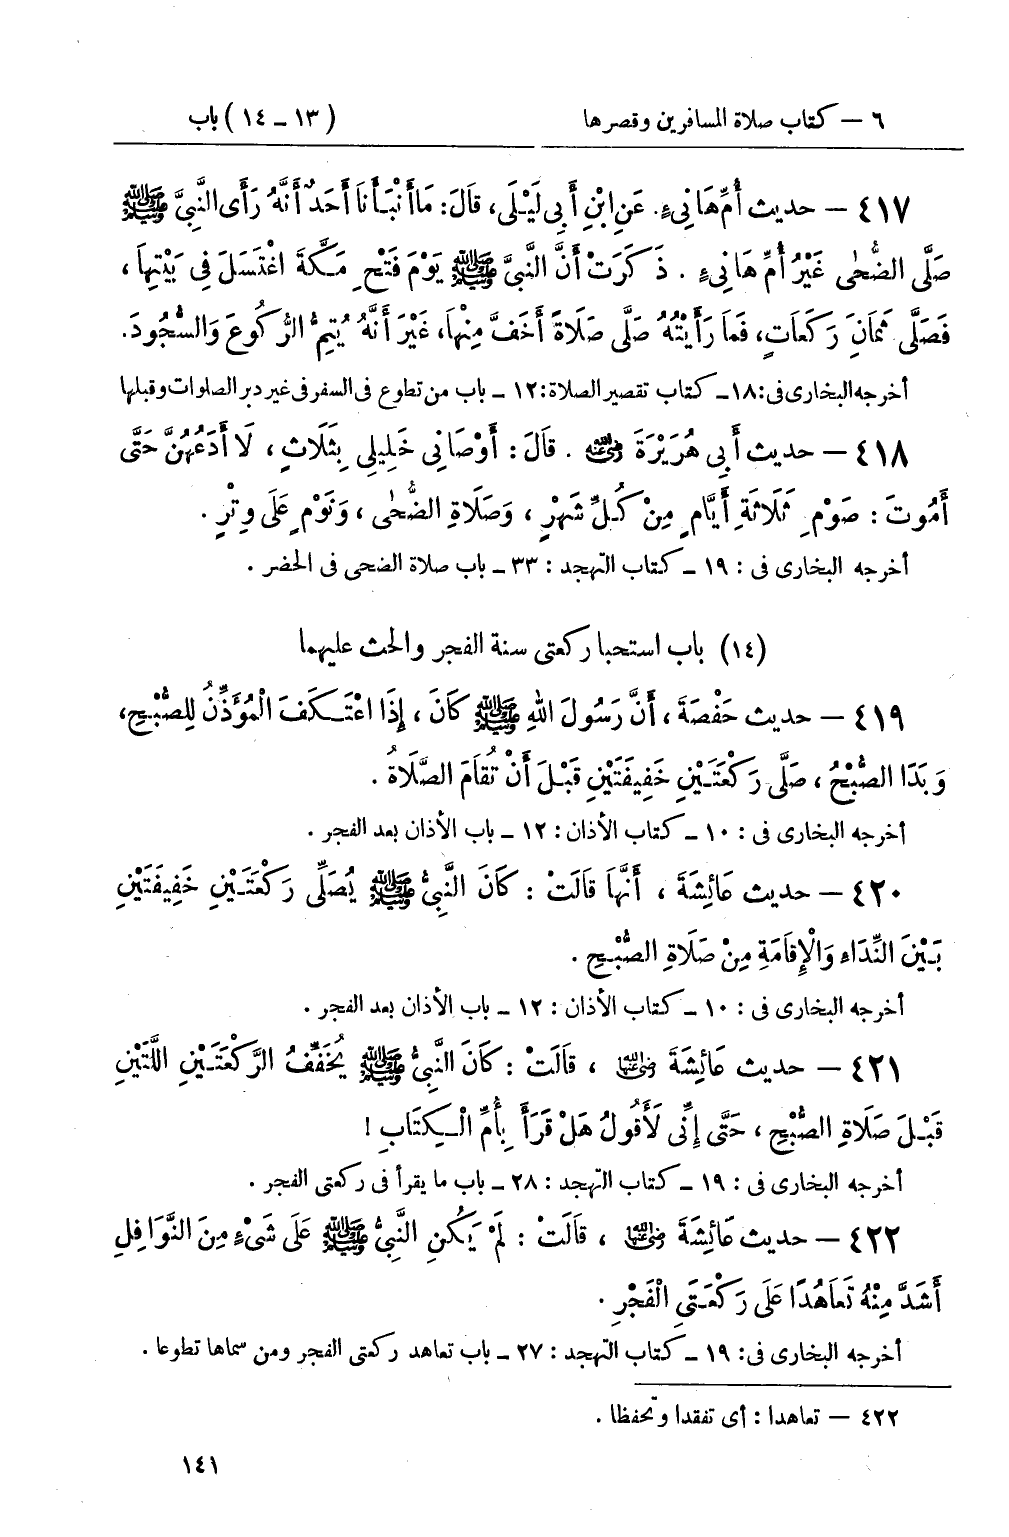 ٦ – كتاب صلاة المسافرين وقصرها (١٣ – ١٤) باب
٤١٧ – حديث أُمِّ هَانِيءٍ. عَنِ ابْنِ أَبِي لَيْلَى، قَالَ: مَا أَنْبَأَنَا أَحَدٌ أَنَّهُ رَأَى النَّبِيَّ ﷺ
صَلَّى الضُّحٰى غَيْرُ أُمِّ هَانِيءٍ . ذَكَرَتْ أَنَّ النَّبِيَّ ﷺ يَوْمَ فَتْحِ مَكَّةَ اغْتَسَلَ فِي بَيْتِهَا ،
فَصَلَّى ثَمَانَ رَكَعَاتٍ، فَمَا رَأَيْتُهُ صَلَّى صَلَاةً أَخَفَّ مِنْهَا، غَيْرَ أَنَّهُ يُتِمُّ الرُّكُوعَ وَالسُّجُودَ.
أخرجه البخارى فى: ١٨ – كتاب تقصير الصلاة: ١٢ – باب من تطوع فى السفر فى غير دبر الصلوات وقبلها
٤١٨ – حديث أَبِي هُرَيْرَةَ رضي الله عنه . قَالَ : أَوْصَانِي خَلِيلِي بِثَلَاثٍ ، لَا أَدَعُهُنَّ حَتَّى
أَمُوتَ : صَوْمِ ثَلَاثَةِ أَيَّامٍ مِنْ كُلِّ شَهْرٍ ، وَصَلَاةِ الضُّحٰى ، وَنَوْمٍ عَلَى وِتْرٍ .
أخرجه البخارى فى : ١٩ – كتاب التهجد : ٣٣ – باب صلاة الضحى فى الحضر .
(١٤) باب استحبا ركعتى سنة الفجر والحث عليهما
٤١٩ – حديث حَفْصَةَ ، أَنَّ رَسُولَ اللهِ ﷺ كَانَ ، إِذَا اعْتَكَفَ الْمُؤَذِّنُ لِلصُّبْحِ،
وَبَدَا الصُّبْحُ ، صَلَّى رَكْعَتَيْنِ خَفِيفَتَيْنِ قَبْلَ أَنْ تُقَامَ الصَّلَاةُ .
أخرجه البخارى فى : ١٠ – كتاب الأذان : ١٢ – باب الأذان بعد الفجر .
٤٢٠ – حديث عَائِشَةَ ، أَنَّهَا قَالَتْ : كَانَ النَّبِيُّ ﷺ يُصَلِّي رَكْعَتَيْنِ خَفِيفَتَيْنِ
بَيْنَ النِّدَاءِ وَالْإِقَامَةِ مِنْ صَلَاةِ الصُّبْحِ .
أخرجه البخارى فى : ١٠ – كتاب الأذان : ١٢ – باب الأذان بعد الفجر .
٤٢١ – حديث عَائِشَةَ رضي الله عنها ، قَالَتْ : كَانَ النَّبِيُّ ﷺ يُخَفِّفُ الرَّكْعَتَيْنِ اللَّتَيْنِ
قَبْلَ صَلَاةِ الصُّبْحِ ، حَتَّى إِنِّي لَأَقُولُ هَلْ قَرَأَ بِأُمِّ الْكِتَابِ !
أخرجه البخارى فى : ١٩ – كتاب التهجد : ٢٨ – باب ما يقرأ فى ركعتى الفجر .
٤٢٢ – حديث عَائِشَةَ رضي الله عنها ، قَالَتْ : لَمْ يَكُنِ النَّبِيُّ ﷺ عَلَى شَيْءٍ مِنَ النَّوَافِلِ
أَشَدَّ مِنْهُ تَعَاهُدًا عَلَى رَكْعَتَيِ الْفَجْرِ .
أخرجه البخارى فى: ١٩ – كتاب التهجد : ٢٧ – باب تعاهد ركعتى الفجر ومن سماها تطوعا .
٤٢٢ – تعاهدا : أى تفقدا وتحفظا .
١٤١